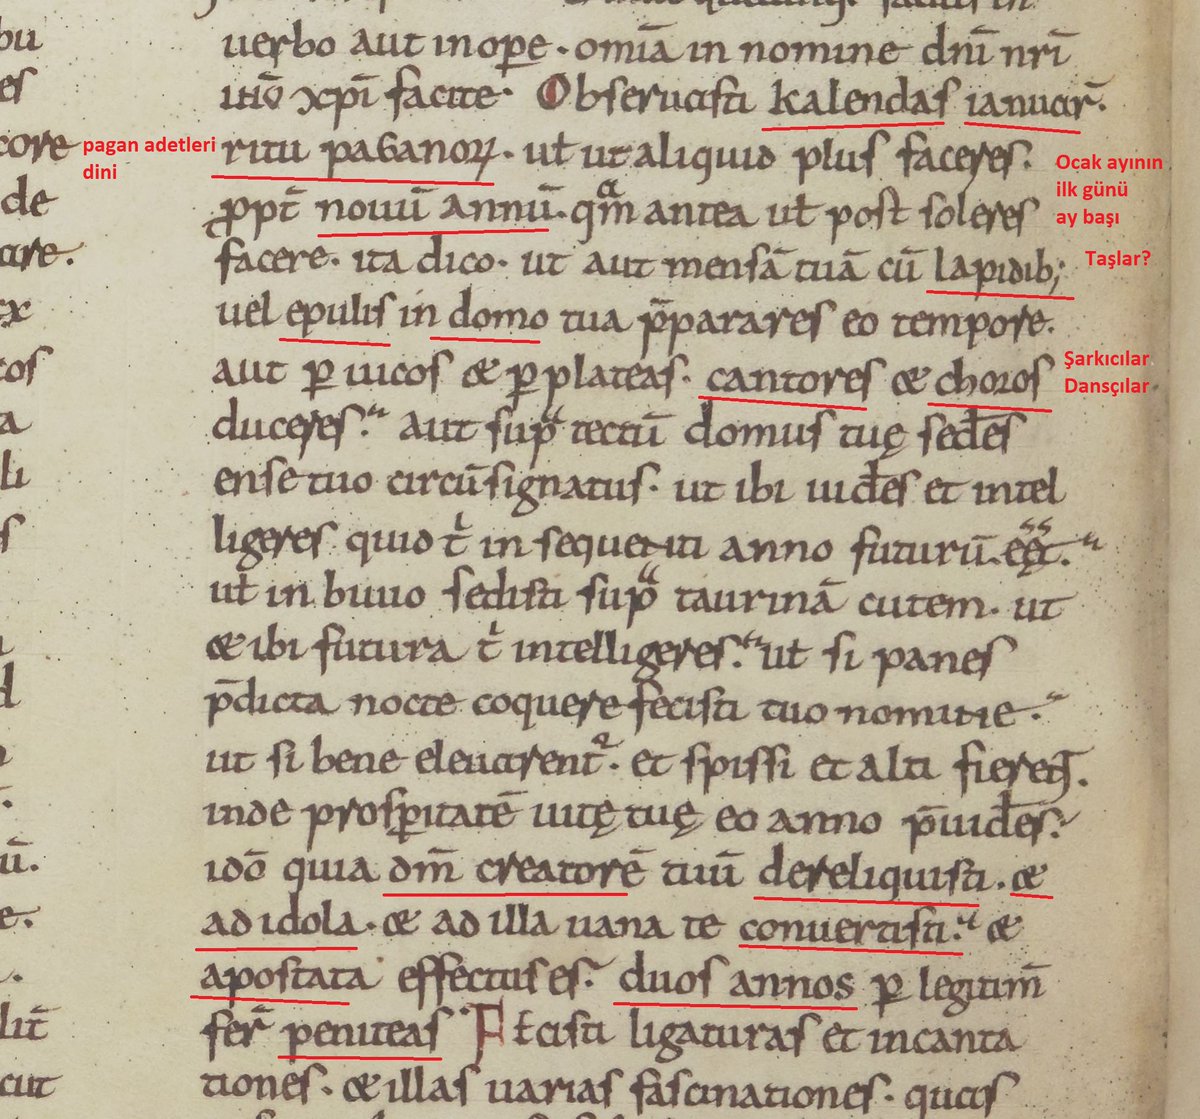 bu
es
core
de
are.
ex
tos
a
li
s
d
ū.
e.
lit̄
pagan adetleri
dini
uerbo aut in oꝑe · om̄ia in nomine dn̄i nr̄i
ihū xp̄i facite · Obseruasti kalendas ianuar̄.
ritu paganoꝝ · uł ut aliquid plus faceres.
ꝓpt̄ nouū annū · qͣm antea uł post soleres
facere · ita dico · ut aut mensā tuā cū lapidib;
uel epulis in domo tua p̄parares eo tempore.
aut ꝑ uicos & ꝑ plateas · cantores & choros
duceres. aut supͣ tectū domus tuę sed̄es
ense tuo circūsignatus · ut ibi uid̄es et intel
ligeres quid t̄ in sequenti anno futurū eēt.
uł in biuio sedisti supͣ taurinā cutem · ut
& ibi futura t̄ intelligeres. uł si panes
p̄dicta nocte coquere fecisti tuo nomine.
ut si bene eleuarent᷑ · et spissi et alti fierent.
inde prosꝑitatē uitę tuę eo anno p̄uid̄es.
idō quia dm̄ creatorē tuū dereliquisti · &
ad idola · & ad illa uana te conuertisti. &
apostata effectus es. duos annos ꝑ legitim̄
fer̄ peniteas Fecisti ligaturas et incanta
tiones · & illas uarias fascinationes · quas
Ocak ayının
ilk günü
ay başı
Taşlar?
Şarkıcılar
Dansçılar